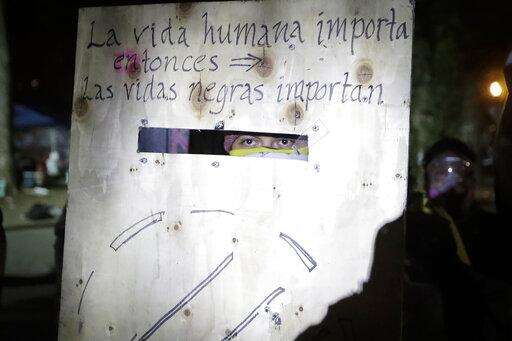 La vida humana importa
entonces ⇒
Las vidas negras importan